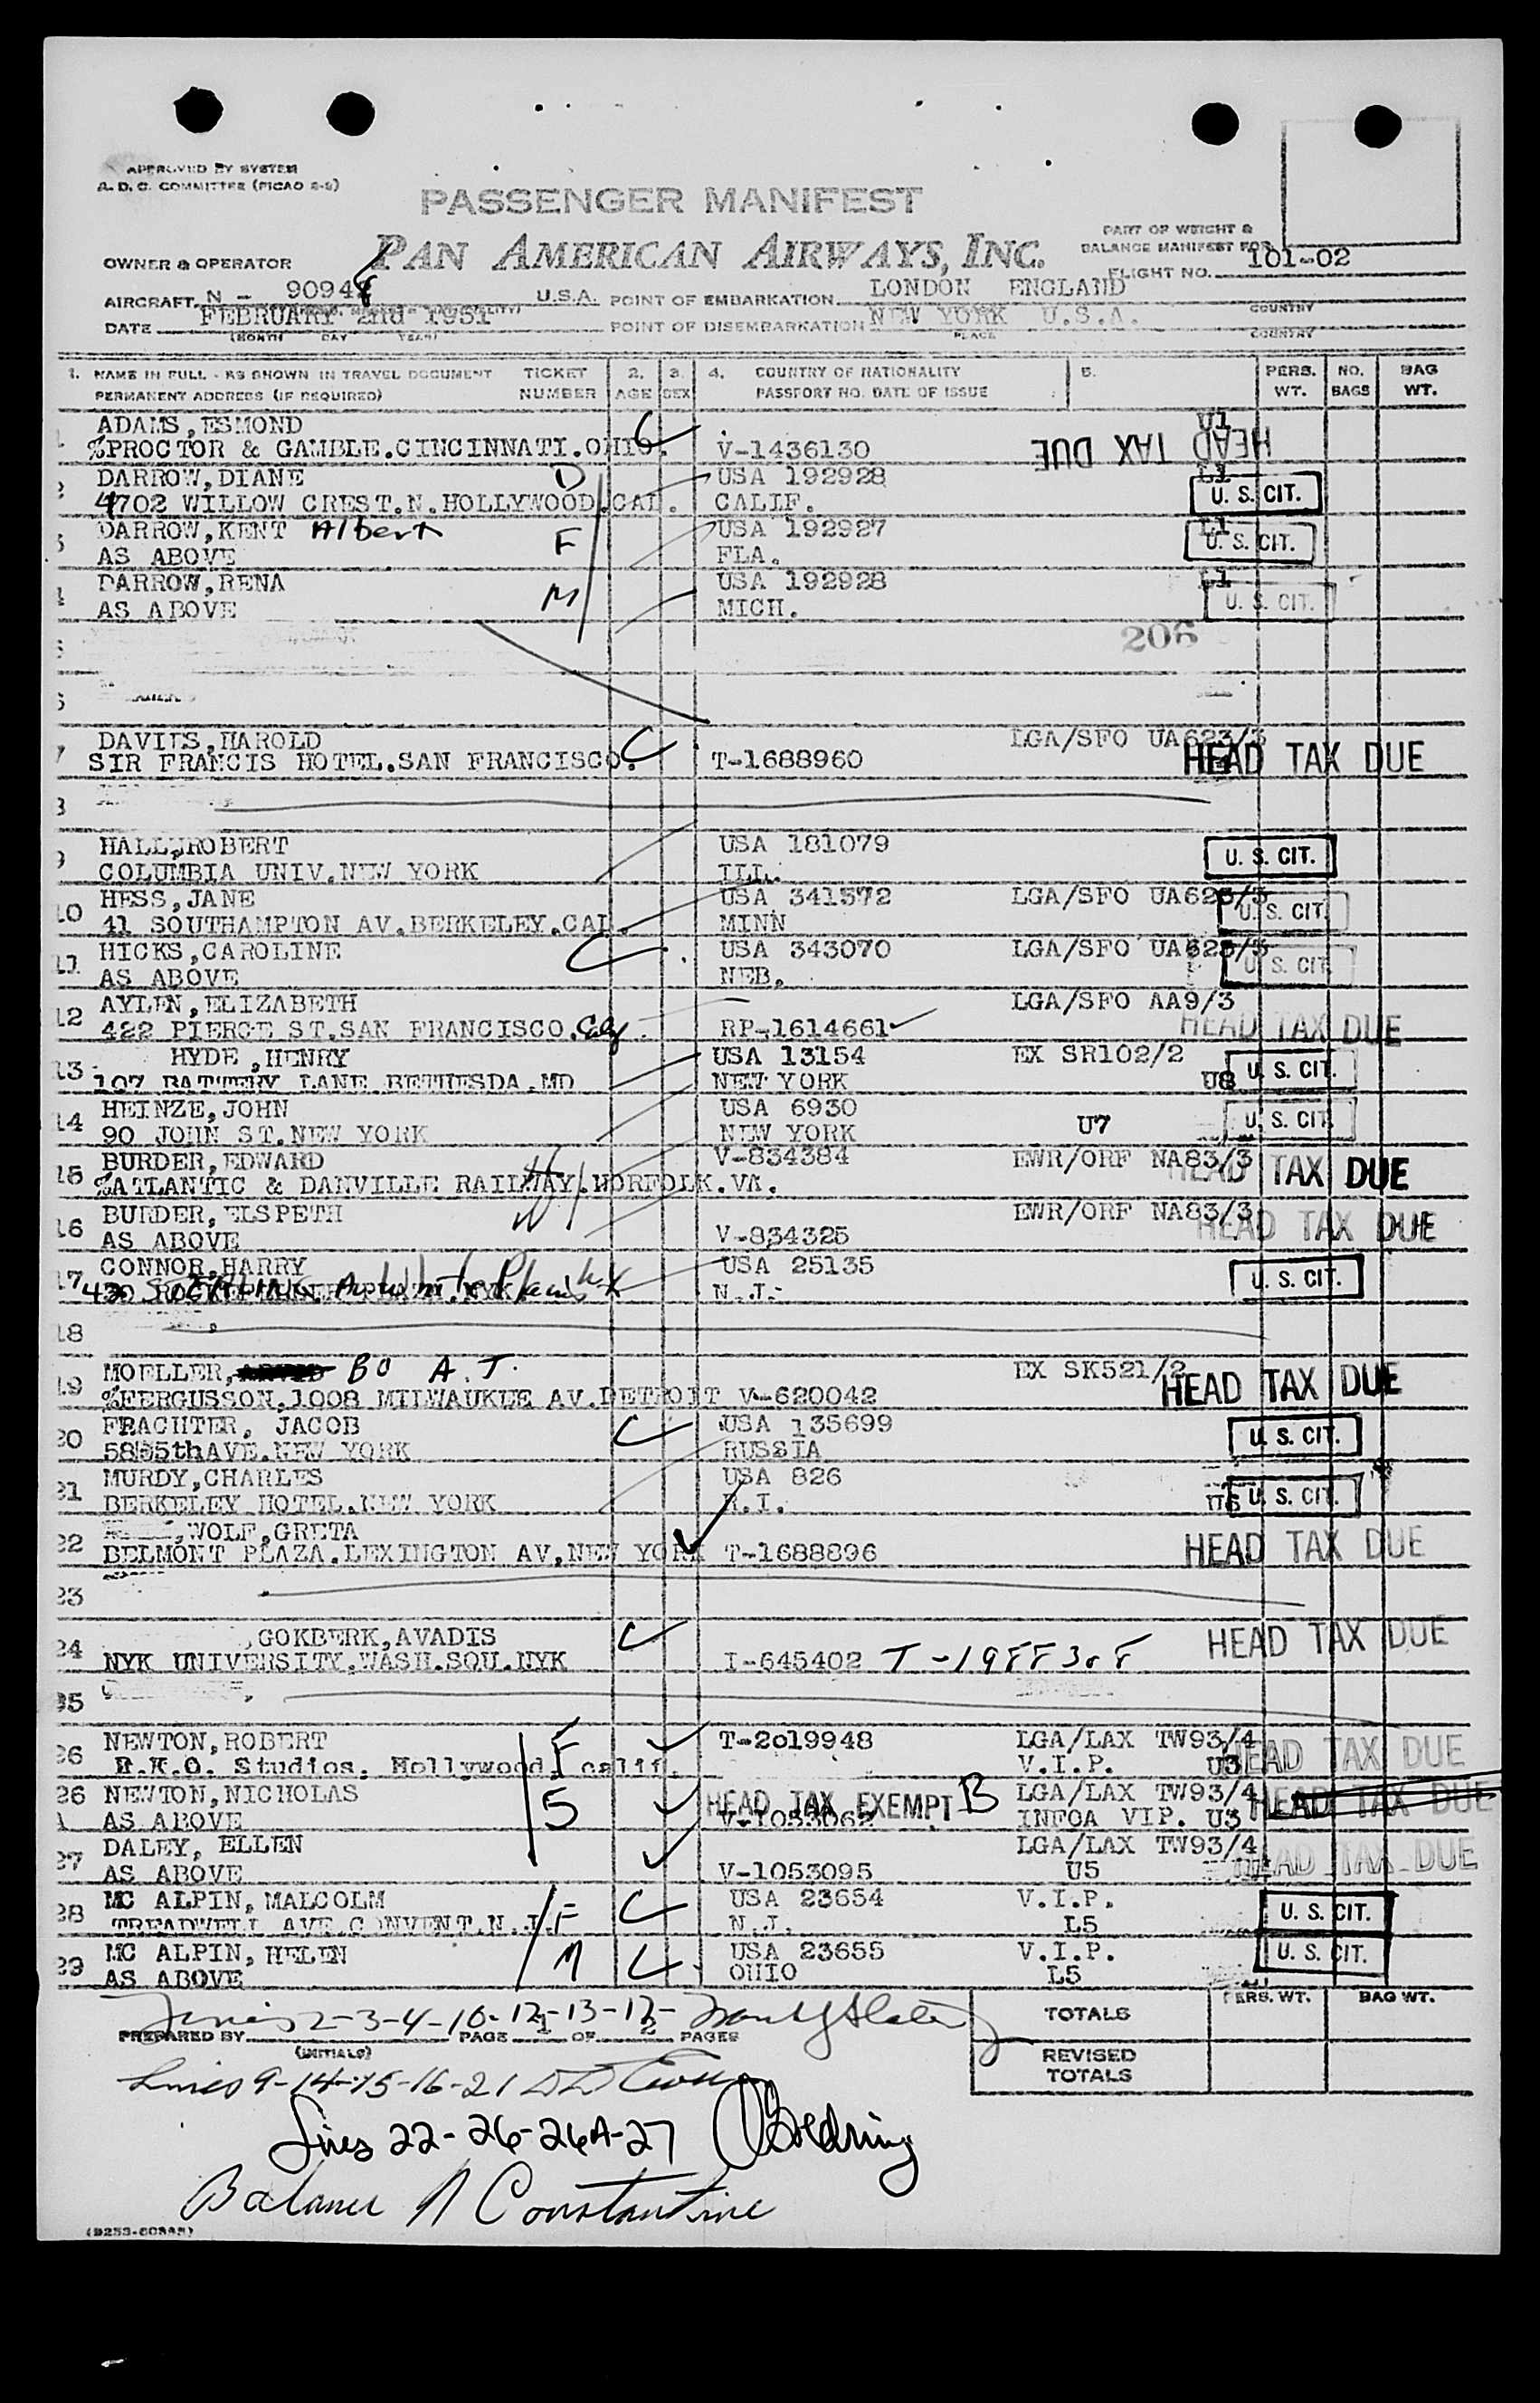 APPROVED BY SYSTEM
A. D. C. COMMITTEE (PICAO 2-2)
PASSENGER MANIFEST
PAN AMERICAN AIRWAYS, INC.
PART OF WEIGHT &
BALANCE MANIFEST FOR
OWNER & OPERATOR
FLIGHT NO. 101-02
AIRCRAFT N - 9094 U.S.A. POINT OF EMBARKATION LONDON ENGLAND COUNTRY
DATE FEBRUARY 2nd 1951 POINT OF DISEMBARKATION NEW YORK U.S.A.
(MONTH DAY YEAR) PLACE COUNTRY
1. NAME IN FULL - AS SHOWN IN TRAVEL DOCUMENT TICKET 2. 3. 4. COUNTRY OF NATIONALITY 5. PERS. NO. BAG
PERMANENT ADDRESS (IF REQUIRED) NUMBER AGE SEX PASSPORT NO. DATE OF ISSUE WT. BAGS WT.
ADAMS, ESMOND
%PROCTOR & GAMBLE.CINCINNATI.OHIO. V-1436130 HEAD TAX DUE
DARROW, DIANE D USA 192928 L1
4702 WILLOW CREST.N.HOLLYWOOD.CAL. CALIF. U. S. CIT.
DARROW, KENT Albert F USA 192927 L1
AS ABOVE FLA. U. S. CIT.
DARROW, RENA M USA 192928 L1
AS ABOVE MICH. U. S. CIT.
206
DAVIES, HAROLD LGA/SFO UA623/3
7 SIR FRANCIS HOTEL.SAN FRANCISCO. T-1688960 HEAD TAX DUE
HALL, ROBERT USA 181079
9 COLUMBIA UNIV.NEW YORK ILL. U. S. CIT.
HESS, JANE USA 341572 LGA/SFO UA623/3
10 41 SOUTHAMPTON AV.BERKELEY.CAL. MINN U. S. CIT.
HICKS, CAROLINE USA 343070 LGA/SFO UA623/3
11 AS ABOVE NEB. U. S. CIT.
AYLEN, ELIZABETH LGA/SFO AA9/3
12 422 PIERCE ST.SAN FRANCISCO. RP-1614661 HEAD TAX DUE
HYDE, HENRY USA 13154 EX SR102/2
13 107 BATTERY LANE BETHESDA.MD NEW YORK U8 U. S. CIT.
HEINZE, JOHN USA 6930
14 90 JOHN ST.NEW YORK NEW YORK U7 U. S. CIT.
BURDER, EDWARD V-834384 EWR/ORF NA83/3
15 %ATLANTIC & DANVILLE RAILWAY.NORFOLK.VA. HEAD TAX DUE
BURDER, ELSPETH EWR/ORF NA83/3
16 AS ABOVE V-834325 HEAD TAX DUE
CONNOR, HARRY USA 25135
17 N.J. U. S. CIT.
18
MOELLER, BO A.T. EX SK521/2
19 %FERGUSSON.1008 MILWAUKEE AV.DETROIT V-620042 HEAD TAX DUE
FRACHTER, JACOB USA 135699
20 58 5th AVE.NEW YORK RUSSIA U. S. CIT.
MURDY, CHARLES USA 826
21 BERKELEY HOTEL.NEW YORK R.I. U. S. CIT.
, WOLF, GRETA
22 BELMONT PLAZA.LEXINGTON AV.NEW YORK T-1688896 HEAD TAX DUE
23
, GOKBERK, AVADIS
24 NYK UNIVERSITY.WASH.SQU.NYK I-645402 HEAD TAX DUE
25
NEWTON, ROBERT F T-2019948 LGA/LAX TW93/4
26 R.K.O. Studios. Hollywood calif. V.I.P. U3 HEAD TAX DUE
26 NEWTON, NICHOLAS S HEAD TAX EXEMPT B LGA/LAX TW93/4 HEAD TAX DUE
A AS ABOVE V-1053062 VIP. U3
DALEY, ELLEN LGA/LAX TW93/4
27 AS ABOVE V-1053095 U5 HEAD TAX DUE
MC ALPIN, MALCOLM USA 23654 V.I.P.
28 TREADWELL AVE.CONVENT.N.J. F N.J. L5 U. S. CIT.
MC ALPIN, HELEN M USA 23655 V.I.P.
29 AS ABOVE OHIO L5 U. S. CIT.
PERS. WT. BAG WT.
Lines 2-3-4-10-12-13-17- TOTALS
PREPARED BY PAGE 1 OF 2 PAGES
(INITIALS)
REVISED
TOTALS
Lines 9-14-15-16-21
Lines 22-26-26A-27 Goldring
Balance N Constantine